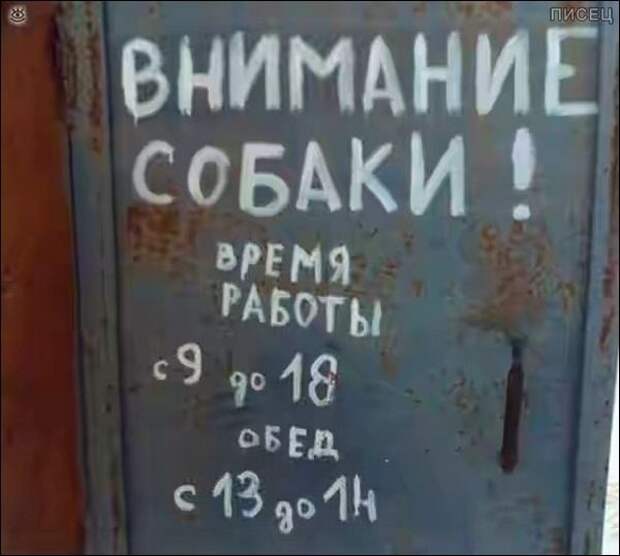 ПИСЕЦ
ВНИМАНИЕ
СОБАКИ !
ВРЕМЯ
РАБОТЫ
с 9 до 18
ОБЕД
с 13 до 14